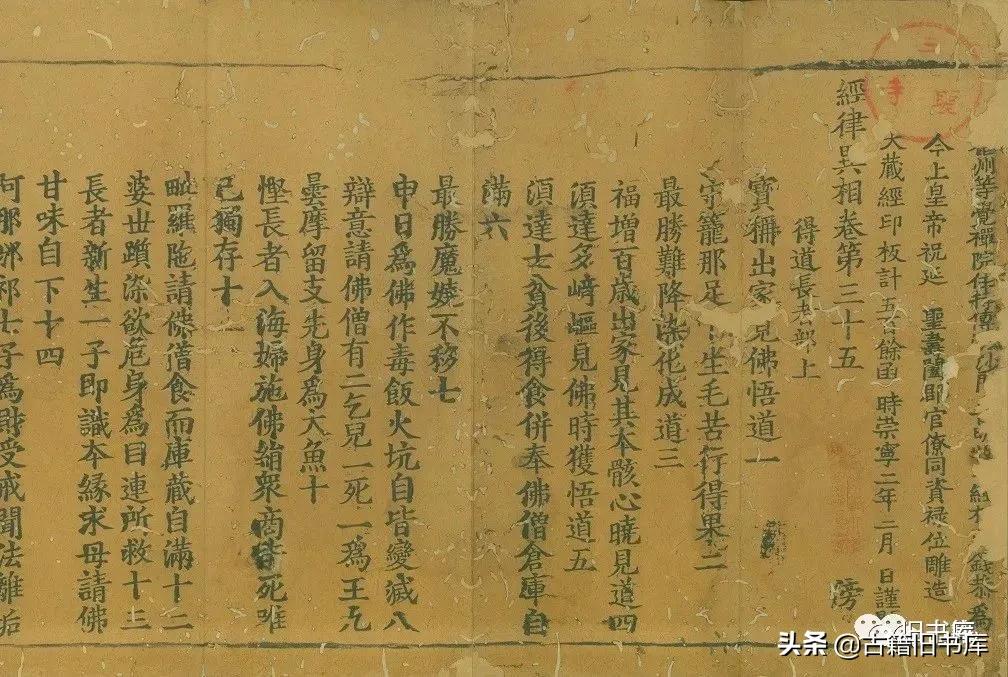 州等覺禪院住持傳法沙門 錢恭為
今上皇帝祝延 聖壽闔郡官僚同資祿位雕造
大藏經印板計五百餘函 時崇寧二年二月 日謹
經律異相卷第三十五 傍
得道長者部上
寶稱出家見佛悟道一
守籠那足下生毛苦行得果二
最勝難降柒化成道三
福增百歲出家見其本骸心曉見道四
須達多崎嶇見佛時獲悟道五
須達七貧後得食併奉佛僧倉庫自
滿六
最勝魔嬈不移七
申日為佛作毒飯火坑自皆變滅八
辯意請佛僧有二乞兒一死一為王九
曇摩留支先身為大魚十
慳長者入海婦施佛絹眾商皆死唯
已獨存十一
毗羅陁請佛僧食而庫藏自滿十二
婆世躓染欲危身為目連所救十三
長者新生一子即識本緣求母請佛
甘味自下十四
阿那邠祁七子為財受戒聞法離垢
三聖寺
旧书库
头条 @古籍旧书库